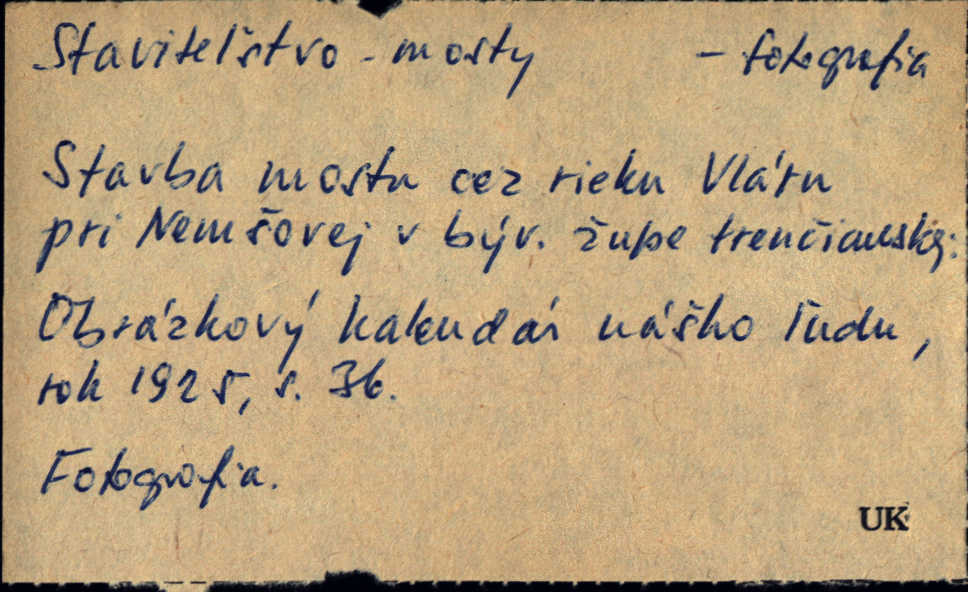 Staviteľstvo - mosty – fotografia
Stavba mostu cez rieku Vláru
pri Nemšovej v býv. župe trenčianskej.
Obrázkový kalendár nášho ľudu,
rok 1925, s. 36.
Fotografia.
UK